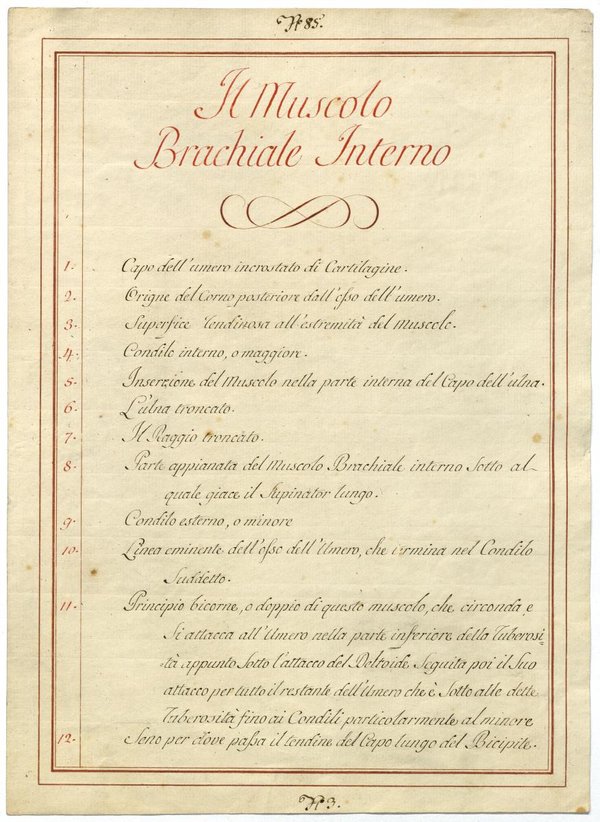 N 85.
Il Muscolo
Brachiale Interno
1. Capo dell'umero incrostato di Cartilagine.
2. Origne del Corno posteriore dall'osso dell'umero.
3. Superfice Tendinosa all'estremità del Muscolo.
4. Condilo interno, o maggiore.
5. Inserzione del Muscolo nella parte interna del Capo dell'ulna.
6. L'ulna troncato.
7. Il Raggio troncato.
8. Parte appianata del Muscolo Brachiale interno Sotto al-
quale giace il Supinator lungo.
9. Condilo esterno, o minore
10. Linea eminente dell'osso dell'Umero, che termina nel Condilo
Suddetto.
11. Principio bicorne, o doppio di questo muscolo, che circonda e
Si attacca all'Umero nella parte inferiore della Tuberosi-
-tà appunto Sotto l'attacco del Deltoide Seguita poi il Suo
attacco per tutto il restante dell'Umero che è Sotto alle dette
Tuberosità fino ai Condili particolarmente al minore
12. Seno per dove passa il tendine del Capo lungo del Bicipite.
N 3.